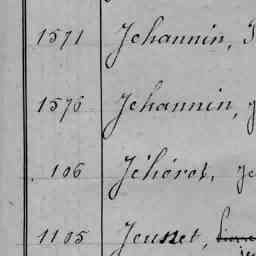 1571 Jehannin,
1576 Jehannin,
106 Jéhérot,
1105 Jeunet,